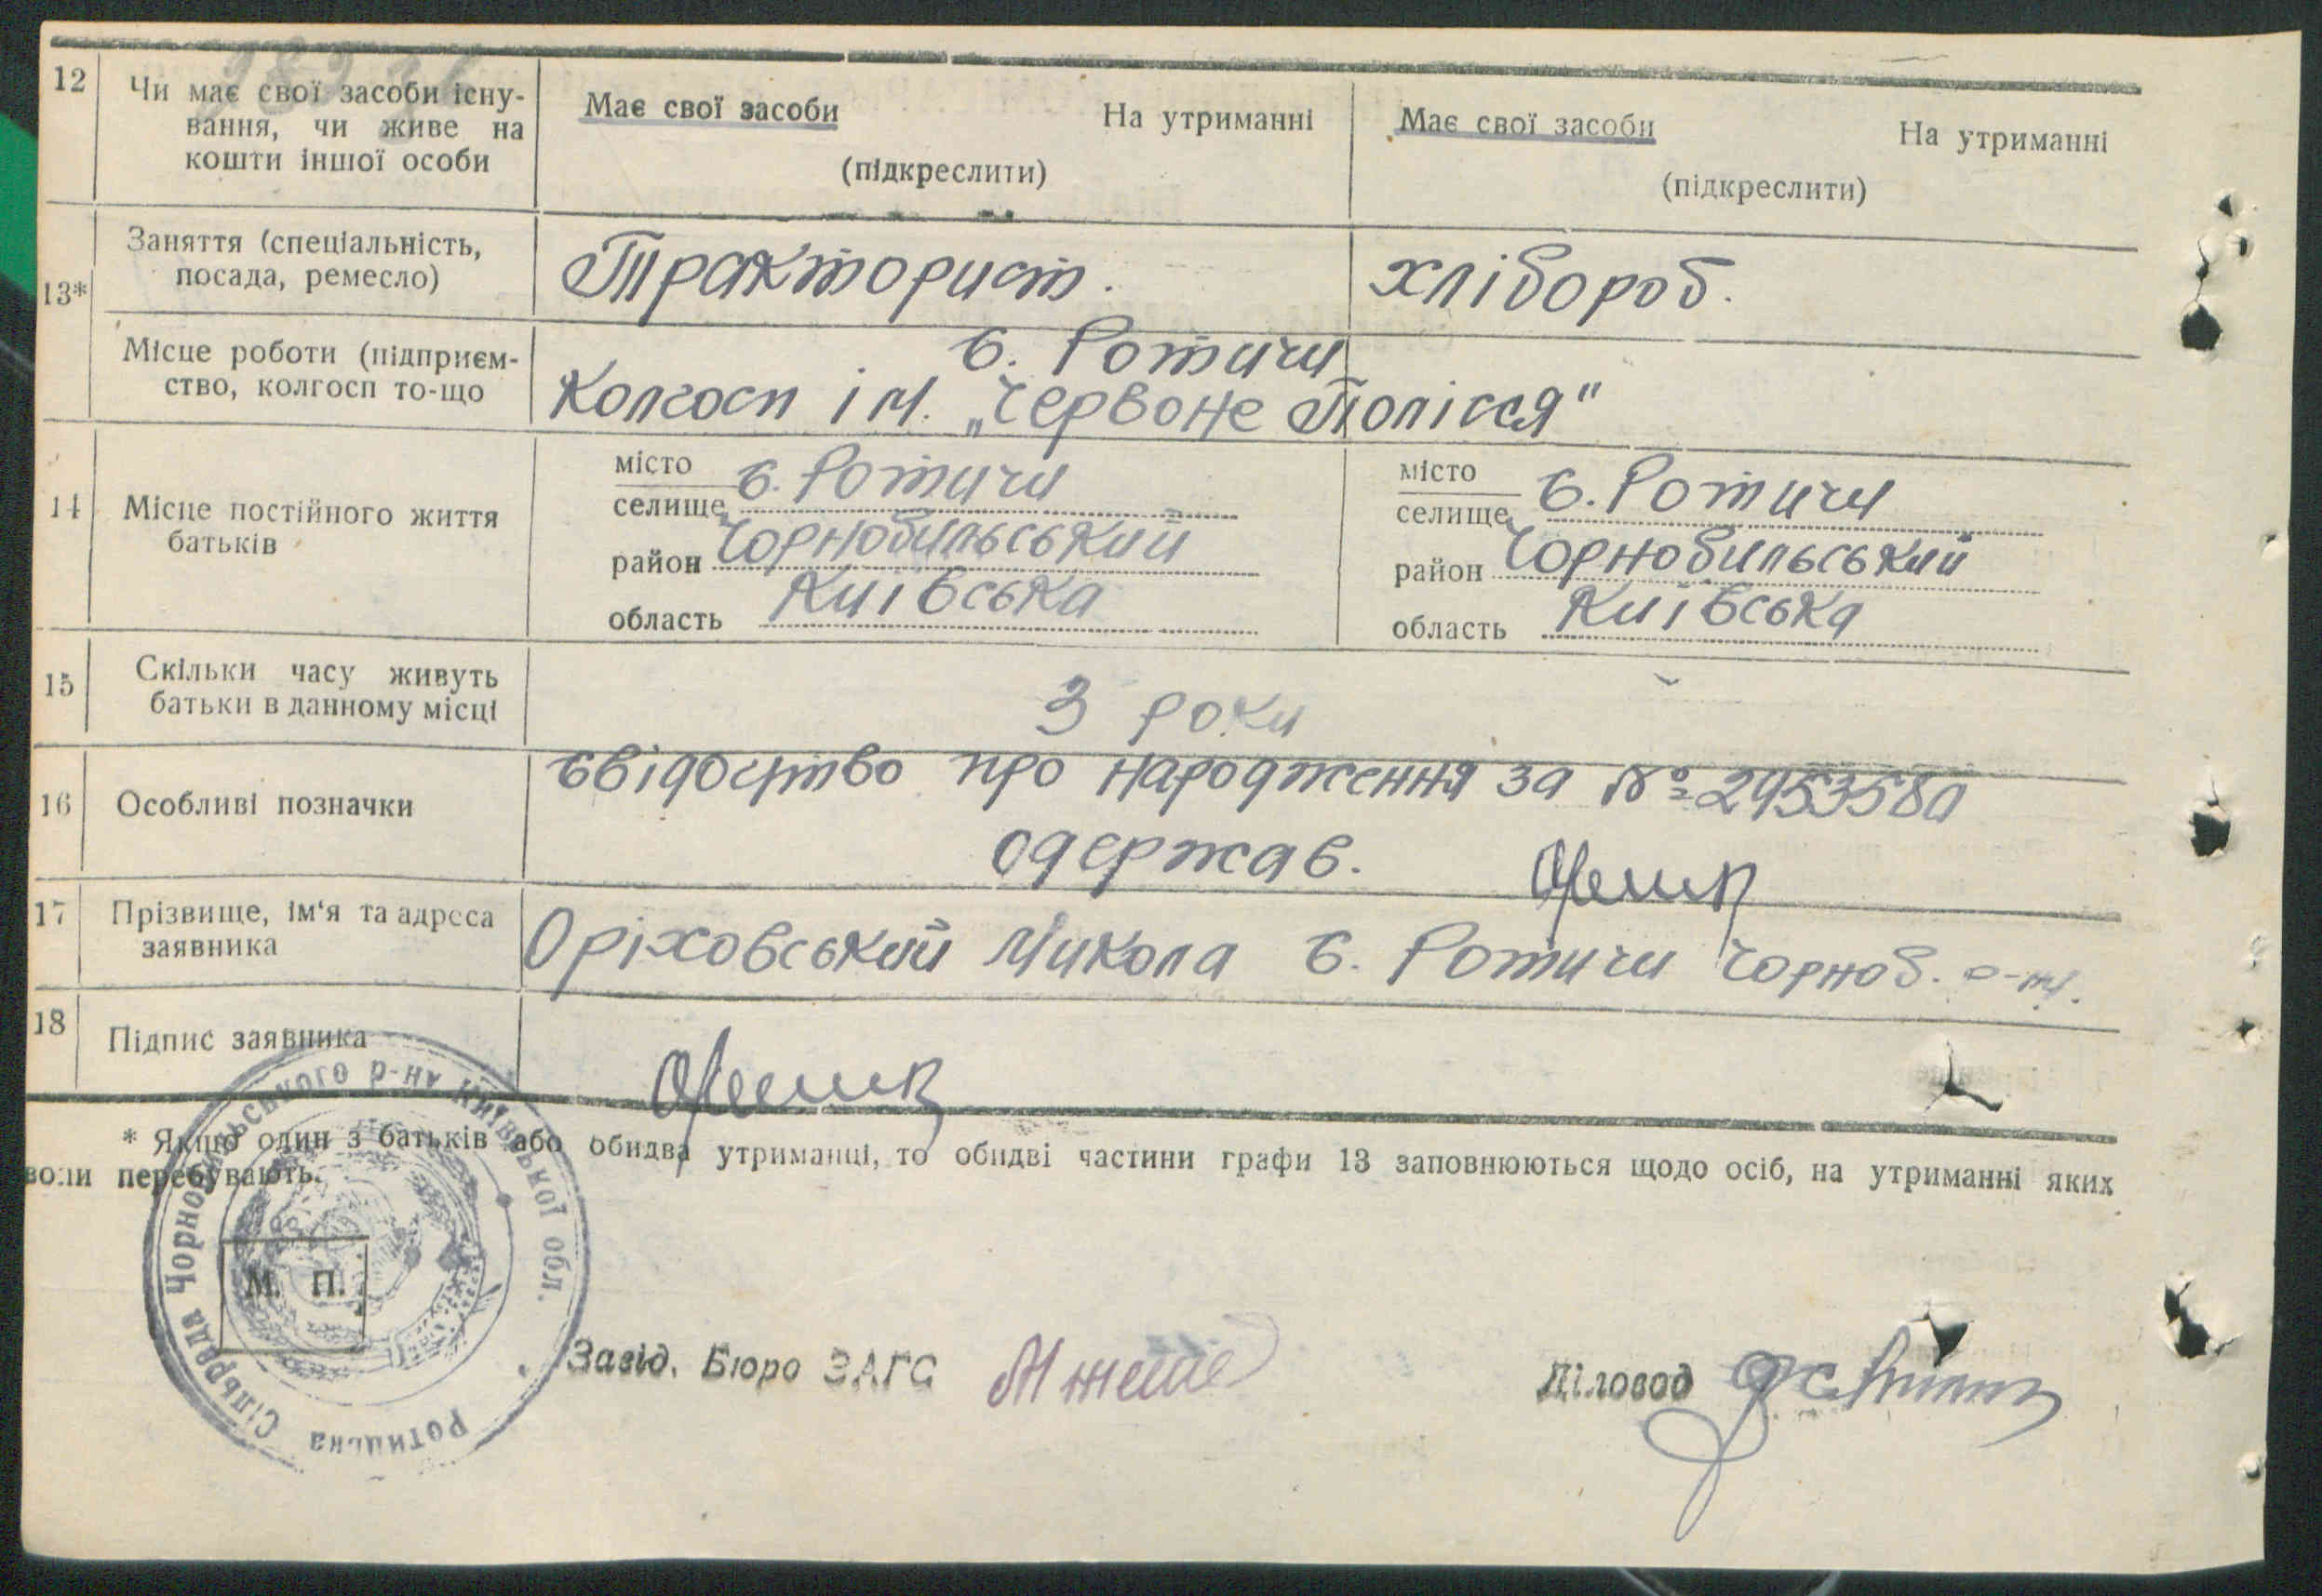 12
Чи має свої засоби існу-
вання, чи живе на
кошти іншої особи
Має свої засоби На утриманні
(підкреслити)
Має свої засоби На утриманні
(підкреслити)
13*
Заняття (спеціальність,
посада, ремесло)
Тракторист.
хлібороб.
Місце роботи (підприєм-
ство, колгосп то-що
с. Ротичи
Колгосп ім. „Червоне Полісся"
14
Місце постійного життя
батьків
місто
селище с. Ротичи
район Чорнобильський
область Київська
місто
селище с. Ротичи
район Чорнобильський
область Київська
15
Скільки часу живуть
батьки в данному місці
3 роки
16
Особливі позначки
свідоцтво про народження за № 2953580
одержав.
17
Прізвище, ім'я та адреса
заявника
Оріховський Микола с. Ротичи Чорноб. р-ну.
18
Підпис заявника
* Якщо один з батьків або обидва утриманці, то обидві частини графи 13 заповнюються щодо осіб, на утриманні яких
воли перебувають.
Ротицька Сільрада Чорнобильського р-ну Київської обл.
М. П.
Завід. Бюро ЗАГС
Діловод